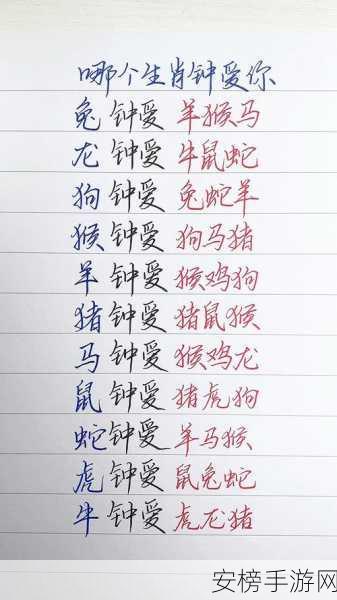 哪个生肖钟爱你
兔钟爱羊猴马
龙钟爱牛鼠蛇
狗钟爱兔蛇羊
猴钟爱狗马猪
羊钟爱猴鸡狗
猪钟爱猪鼠猴
马钟爱猴鸡龙
鼠钟爱猪虎狗
蛇钟爱羊马猴
虎钟爱鼠兔蛇
牛钟爱虎龙猪
安榜手游网